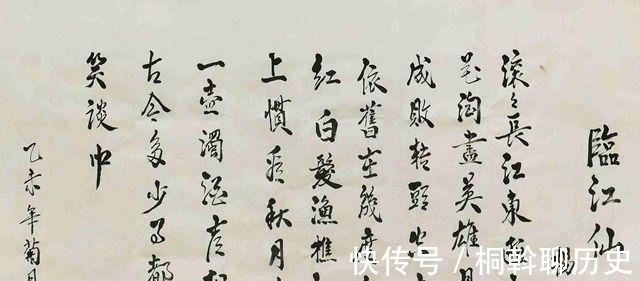 臨江仙
滚々長江東逝
花淘盡英雄
成敗轉頭空
依舊在幾度
紅白髮漁樵
上慣看秋月
一壺濁酒喜
古今多少事都
笑談中
乙未年菊月
快传号 / 桐斡聊历史